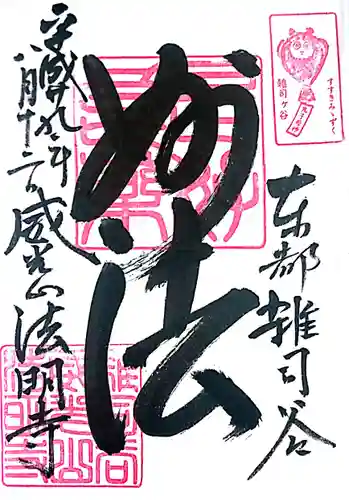 東都雑司谷
妙法
平成廿九年
八月十二日
威光山法明寺
雑司ヶ谷
すすきみゝずく